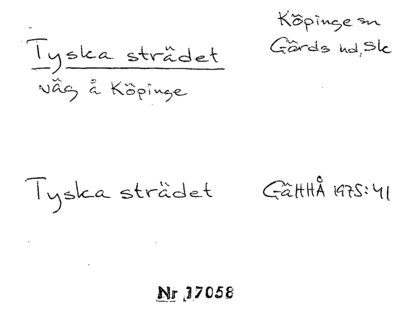 Tyska strädet
väg å Köpinge
Köpinge sn
Gärds hd, Sk
Tyska strädet GäHHÅ 1975:41
Nr 17058